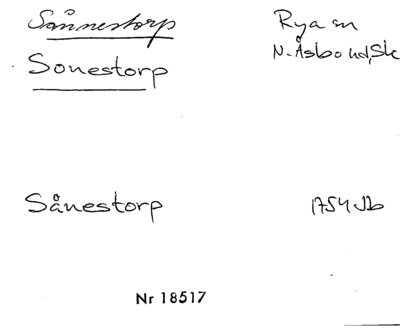 Sånnestorp Rya sn
Sonestorp N. Åsbo hd, Sk
Sånestorp 1754 Jb
Nr 18517